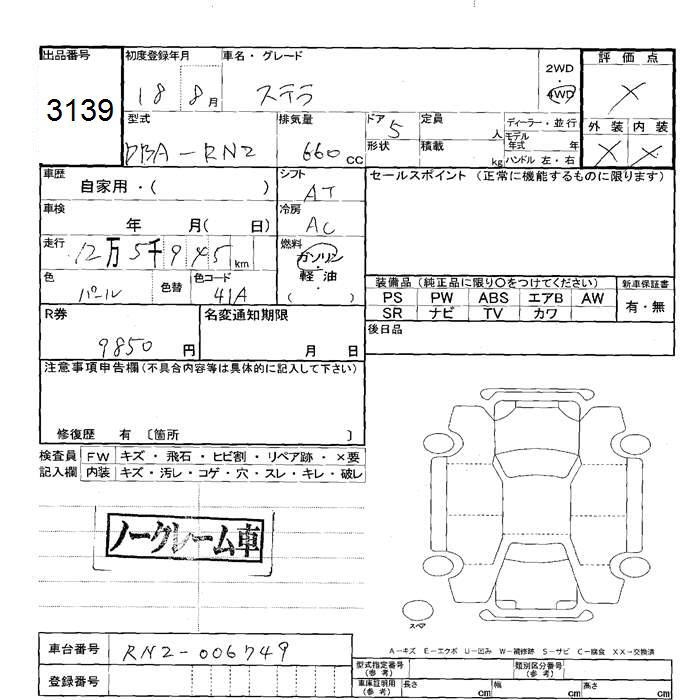 出品番号 初度登録年月 車名・グレード 2WD ・ 4WD 評価点
3139 18 8月 ステラ ×
型式 排気量 ドア 5 定員 人 ディーラー・並行 外装 内装
DBA-RN2 660cc 形状 積載 kg モデル年式 年 × ×
ハンドル 左・右
車歴 自家用・( ) シフト AT セールスポイント (正常に機能するものに限ります)
車検 年 月( 日) 冷房 AC
走行 12万5千945km 燃料 ガソリン
軽・油
( )
色 パール 色替 色コード 41A
装備品 (純正品に限り○をつけてください) 新車保証書
PS PW ABS エアB AW 有・無
SR ナビ TV カワ
R券 9850円 名変通知期限 月 日 後日品
注意事項申告欄(不具合内容等は具体的に記入して下さい)
修復歴 有 〔箇所 〕
検査員 FW キズ・飛石・ヒビ割・リペア跡・×要
記入欄 内装 キズ・汚レ・コゲ・穴・スレ・キレ・破レ
ノークレーム車
スペア
A-キズ E-エクボ U-凹み W-補修跡 S-サビ C-腐食 XX-交換済
車台番号 RN2-006749
登録番号
型式指定番号(参考) 類別区分番号(参考)
車庫証明用(参考) 長さ cm 幅 cm 高さ cm